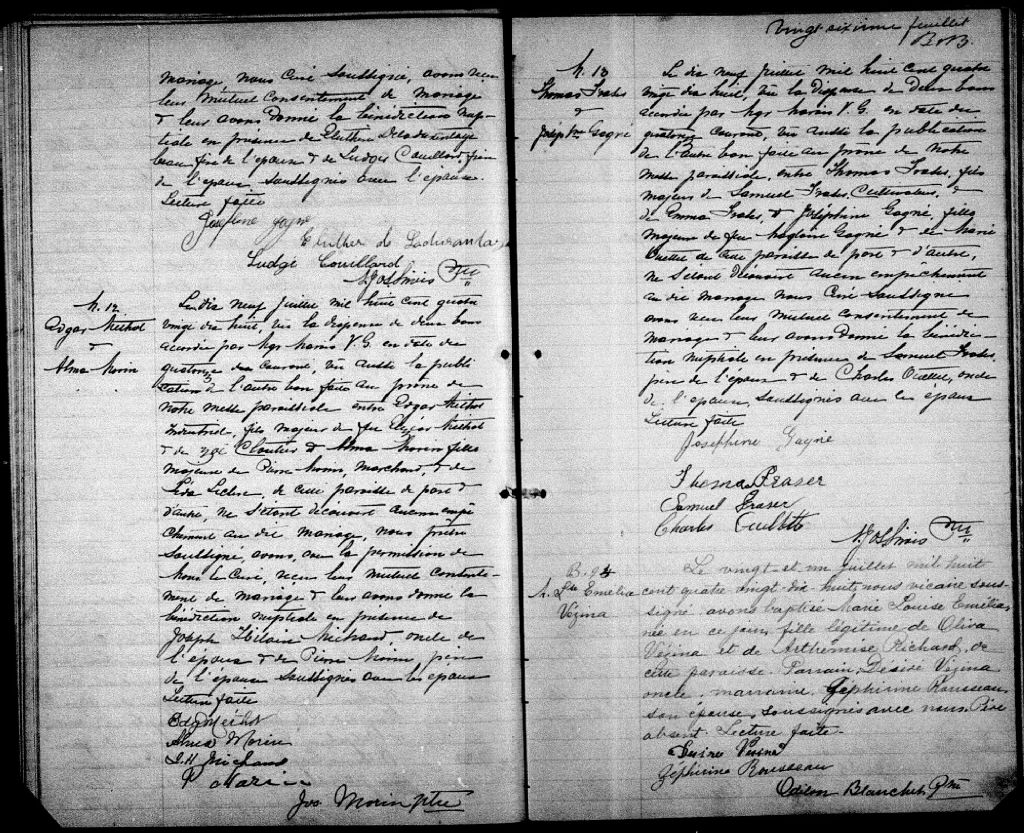 mariage nous Curé Soussigné, avons recu
leur Mutuel Consentement de mariage
& leur avons donné la bénédiction nup-
tiale en présence de Eluthère Deladurantaye
beau frère de l'épouse & de Ludgis Couillard, frère
de l'époux, soussignés avec l'épouse.
Lecture faite
Josephine
Eluther de Laduranta
Ludgé Couillard
Ptre
M. 12
Edgar Méthot
&
Alma Morin
Le dix neuf Juillet mil huit cent quatre
vingt dix huit, vu la dispense de deux bans
accordée par Mgr Marois V. G. en date du
quatorze du courant, vu aussi la publi
cation de l'autre ban faite au prône de
notre messe paroissiale entre Edgar Méthot
Industriel, fils majeur de feu Elzéar Méthot
& de Cloutier & Alma Morin fille
majeure de Pierre Morin Marchand, & de
Léda Leclerc, de cette paroisse de part &
d'autre, ne S'étant découvert aucun empê
chement au dit mariage, nous prêtre
soussigné, avons, avec la permission de
Mons le Curé, recu leur mutuel consente-
ment de mariage & leur avons donné la
bénédiction nuptiale en présence de
Joseph Hilaire Michaud, oncle de
l'époux & de Pierre Morin, père
de l'épouse soussignés avec les époux
Lecture faite
Edg Méthot
Alma Morin
J. H. Michaud
P Morin
Jos Morin ptre
Vingt sixième feuillet
M. 13
Thomas Fraser
&
Josephine Gagné
Le dix neuf Juillet mil huit cent quatre
vingt dix huit, vu la dispense de deux bans
accordée par Mgr Marois V. G. en date du
quatorze courant, vu aussi la publication
de l'autre ban faite au prône de notre
messe paroissiale, entre Thomas Fraser, fils
majeur de Samuel Fraser, Cultivateur, &
de Emma Fraser, & Joséphine Gagné, fille
majeure de feu Gagné & de Marie
Ouellet de cette paroisse de part & d'autre,
ne S'étant découvert aucun empêchement
au dit mariage nous Curé soussigné
avons recu leur mutuel consentement de
mariage & leur avons donné la bénédic-
tion nuptiale en présence de Samuel Fraser,
père de l'époux & de Charles Ouellet, oncle
de l'épouse, soussignés avec les époux
Lecture faite
Josephine Gagné
Thomas Fraser
Samuel Fraser
Charles Ouellette
Ptre
B. 94
M. Lse Emélia
Vézina
Le vingt et un Juillet mil huit
cent quatre vingt dix huit nous vicaire sous-
signé avons baptisé Marie Louise Emélia,
née en ce jour, fille légitime de Oliva
Vézina et de Arthémise Richard, de
cette paroisse. Parrain, Désiré Vézina
oncle, marraine, Zéphirine Rousseau,
son épouse, soussignés avec nous. Père
absent. Lecture faite.
Désiré Vézina
Zéphirine Rousseau
Odilon Blanchet, Ptre